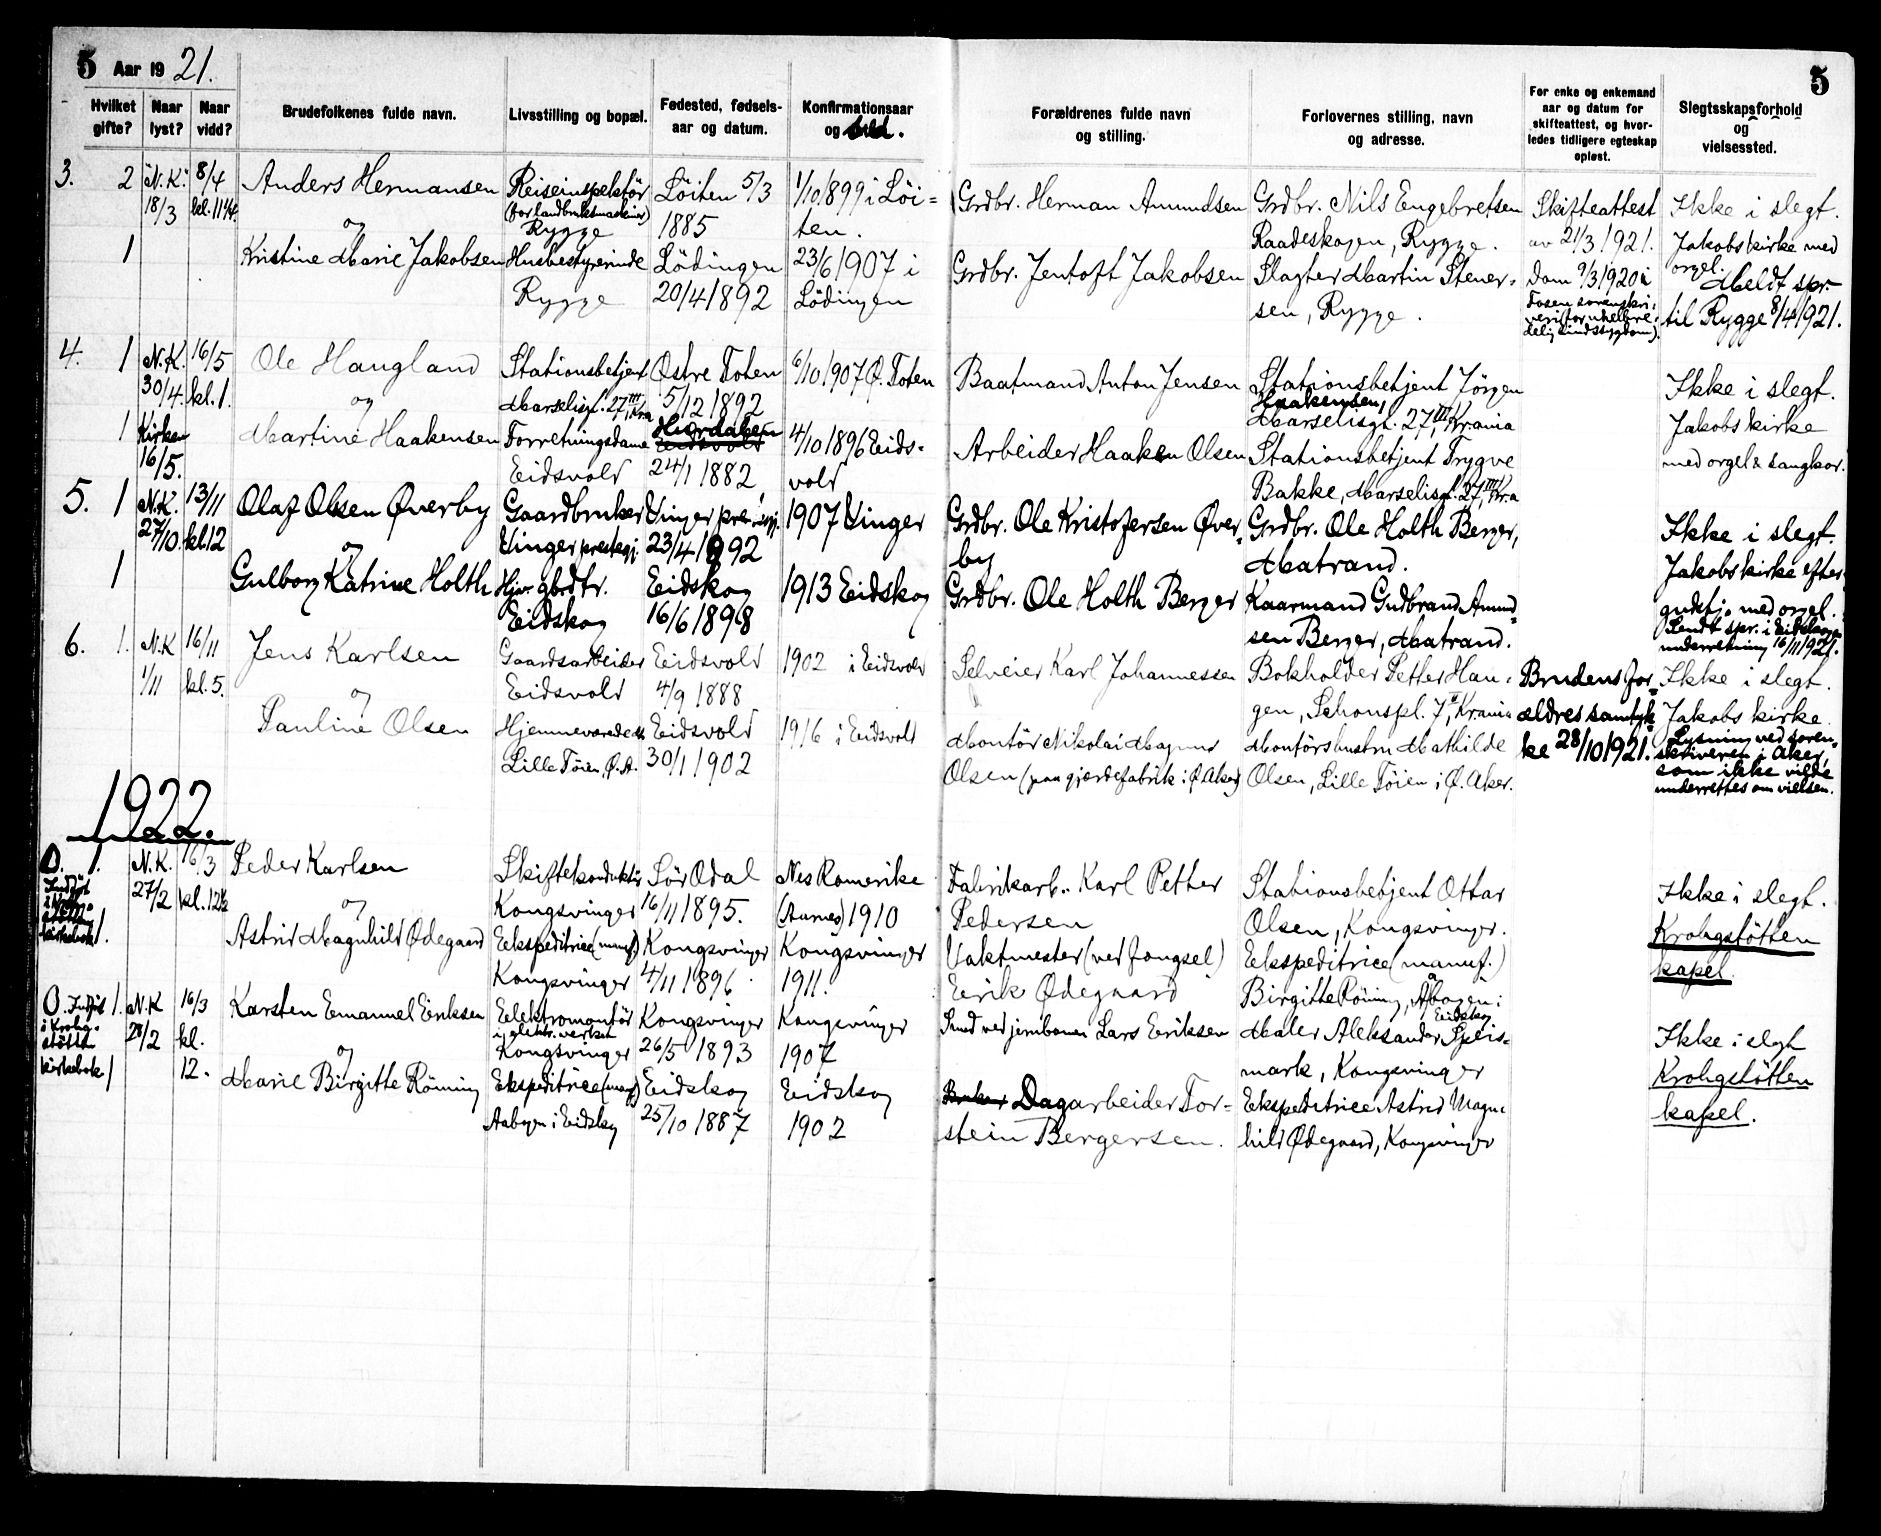 5 Aar 1921.
5
Hvilket gifte?
Naar lyst?
Naar vidd?
Brudefolkenes fulde navn.
Livsstilling og bopæl.
Fødested, fødsels-
aar og datum.
Konfirmationsaar
og sted.
Forældrenes fulde navn
og stilling.
Forlovernes stilling, navn
og adresse.
For enke og enkemand
aar og datum for
skifteattest, og hvor-
ledes tidligere egteskap
opløst.
Slegtsskapsforhold
og
vielsessted.
3. 2 N.K. 18/3 8/4 kl. 11¼
Anders Hermansen
og
Reiseinspektör
(for landbruksmaskiner)
Rygge
Löiten 5/3
1885
1/10 1899 i Löi-
ten.
Grdbr. Herman Amundsen
Grdbr. Nils Engebretsen
Raadeskogen, Rygge.
Skifteattest
av 21/3 1921.
Ikke i slegt.
Jakobs kirke med
orgel.
1
Kristine Marie Jakobsen
Husbestyrerinde
Rygge
Lödingen
20/4 1892
23/6 1907 i
Lödingen
Grdbr. Jentoft Jakobsen
Slagter Martin Stener-
sen, Rygge.
Dom 9/3 1920 i
Fosen sorenskri-
veri (for uhelbre-
delig sindssygdom).
Meldt spr.
til Rygge 8/4 1921.
4. 1 N.K. 30/4. 16/5 kl. 1.
Ole Haugland
og
Stationsbetjent
Marselisgt. 27 III, Kra
Østre Toten
5/12 1892
6/10 1907 Ø. Toten
Baatmand Anton Jensen
Stationsbetjent Jörgen
Haakensen,
Marselisgt. 27 III, Krania
Ikke i slegt.
Jakobs kirke
med orgel & sangkor.
1 Kirken 16/5.
Martine Haakensen
Forretningsdame
Eidsvold
Hurdalen
Eidsvold
24/1 1882
4/10 1896 Eids-
vold
Arbeider Haaken Olsen
Stationsbetjent Trygve
Bakke, Marselisgt. 27 III, Kra
5. 1 N.K. 27/10. 13/11 kl. 12
Olaf Olsen Øverby
og
Gaardbruker
Vinger prestegj.
Vinger prestegj.
23/4 1892
1907 Vinger
Grdbr. Ole Kristofersen Øver-
by
Grdbr. Ole Holth Berger,
Matrand.
Ikke i slegt.
Jakobs kirke efter
gudstj. med orgel.
Sendt spr. i Eidskogen
underretning 16/11 1921.
1
Gulborg Katrine Holth
Hjv. gbrdtr.
Eidskog
Eidskog
16/6 1898
1913 Eidskog
Grdbr. Ole Holth Berger
Kaarmand Gudbrand Amund-
sen Berger, Matrand.
6. 1. N.K 1/11 16/11 kl. 5.
Jens Karlsen
og
Gaardsarbeider
Eidsvold
Eidsvold
4/9 1888
1902 i Eidsvold
Selveier Karl Johannessen
Bokholder Petter Hau-
gen, Schouspl. 7 II, Krania
Brudens for-
ældres samtyk-
ke 28/10 1921.
Ikke i slegt.
Jakobs kirke.
Lysning ved soren-
skriveren i Aker,
som ikke vilde
underrettes om vielsen.
Pauline Olsen
Hjemmeværende
Lille Töien, Ø. A.
Eidsvold
30/1 1902
1916 i Eidsvold
Montör Nikolai Magnus
Olsen (paa gjærdefabrik i Ø. Aker)
Montörshustru Mathilde
Olsen, Lille Töien i Ø. Aker.
1922.
0. 1. N.K. 27/2 16/3 kl. 12½
Indfört
i Krohg-
støtten
kirkebok
Peder Karlsen
og
Skiftekonduktör
Kongsvinger
Sör Odal
16/11 1895.
Nes Romerike
(Aarnes) 1910
Fabrikarb. Karl Petter
Pedersen
Stationsbetjent Ottar
Olsen, Kongsvinger.
Ikke i slegt.
Krohgstötten
kapel.
1.
Astrid Magnhild Ødegaard
Ekspeditrice (manuf.)
Kongsvinger
Kongsvinger
4/11 1896.
Kongsvinger
1911.
Vaktmester (ved fængsel)
Eerik Ødegaard
Ekspeditrice (manuf.)
Birgitte Röning, Åbogen i
Eidskog
0. Indfört 1. N.K 28/2 16/3 kl. 12.
i Krohg-
stötten
kirkebok
Karsten Emanuel Eriksen
og
Elektromontör
v/ elektr. verket
Kongsvinger
Kongsvinger
26/5 1893
Kongsvinger
1907
Smed ved jernbanen Lars Eriksen
Maler Aleksander Speis-
mark, Kongsvinger
Ikke i slegt
Krohgstötten
kapel.
1
Marie Birgitte Röning
Ekspeditrice (manuf.)
Aabogen i Eidskog
Eidskog
25/10 1887
Eidskog
1902
Dagarbeider Tor-
stein Bergersen.
Ekspeditrice Astrid Magn-
hild Ødegaard, Kongsvinger